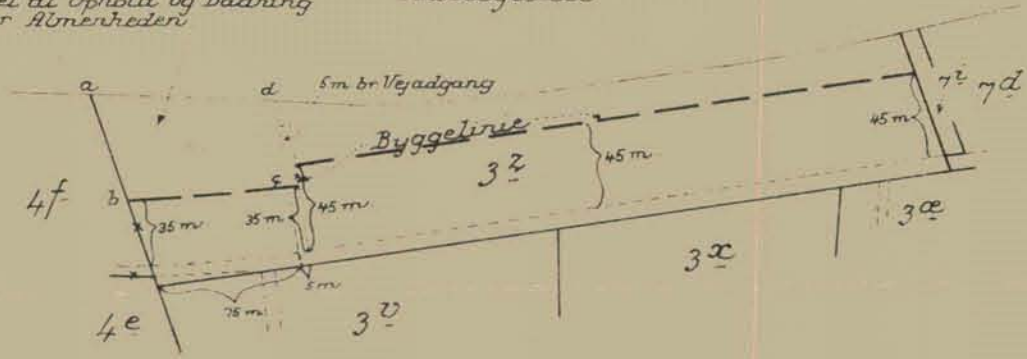 til Ophold og Badning
Almenheden
a
d
5 m br Vejadgang
7 z
7 d
Byggelinie
45 m
3 z
45 m
4 f
b
c
35 m
35 m
45 m
3 æ
3 x
5 m
75 m
3 v
4 e